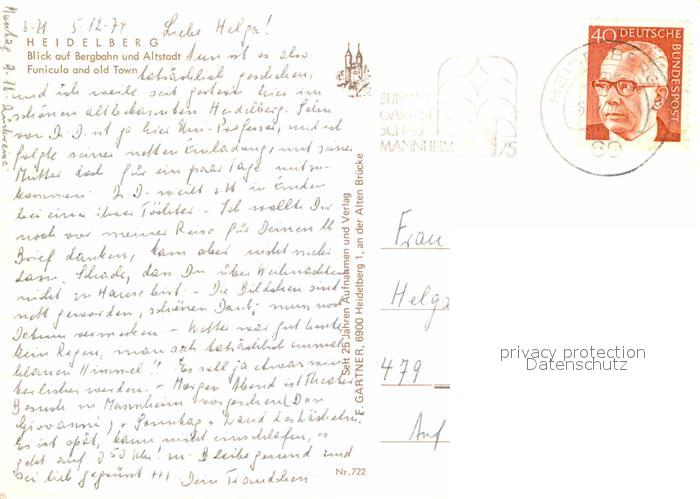 z.Zt 5.12.74 Liebe Helga!
HEIDELBERG
Blick auf Bergbahn und Altstadt Nun ist es also
Funicula and old Town tatsächlich geschehen,
und ich weile seit gestern hier im
schönen altbekannten Heidelberg. Sohn
von Dr. D. ist ja hier Uni-Professor, und ich
folgte seiner netten Einladung, mit seiner
Mutter doch für ein paar Tage mitzu-
kommen. Dr. D. weilt z.Zt in
bei einer ihrer Töchter - Ich wollte Dir
noch vor meiner Reise für Deinen lb
Brief danken, kam aber nicht mehr
dazu. Schade, dass Du über Weihnachten
nicht zu Hause bist - Die Bildchen sind
nett geworden, schönen Dank, muss noch
Datum vermerken. - Wetter war gut heute
kein Regen, man sah tatsächlich einmal
blauen Himmel!! Es soll ja etwas win
terlicher werden. - Morgen Abend ist Theater
Besuch in Mannheim vorgesehen (Don
Giovanni) + Sonntag "Land des Lächelns.
Es ist spät, kann nicht einschlafen, es
geht auf 0 50 Uhr! Bleibe gesund und
sei lieb gegrüsst Dein
Montag
Nr. 722
Seit 25 Jahren Aufnahmen und Verlag
F. GÄRTNER, 6900 Heidelberg 1, an der Alten Brücke
BUNDES
GARTEN
SCHAU
MANNHEIM 75
HEIDELBERG
69
40 DEUTSCHE
BUNDESPOST
Frau
Helga
479
Auf
privacy protection
Datenschutz